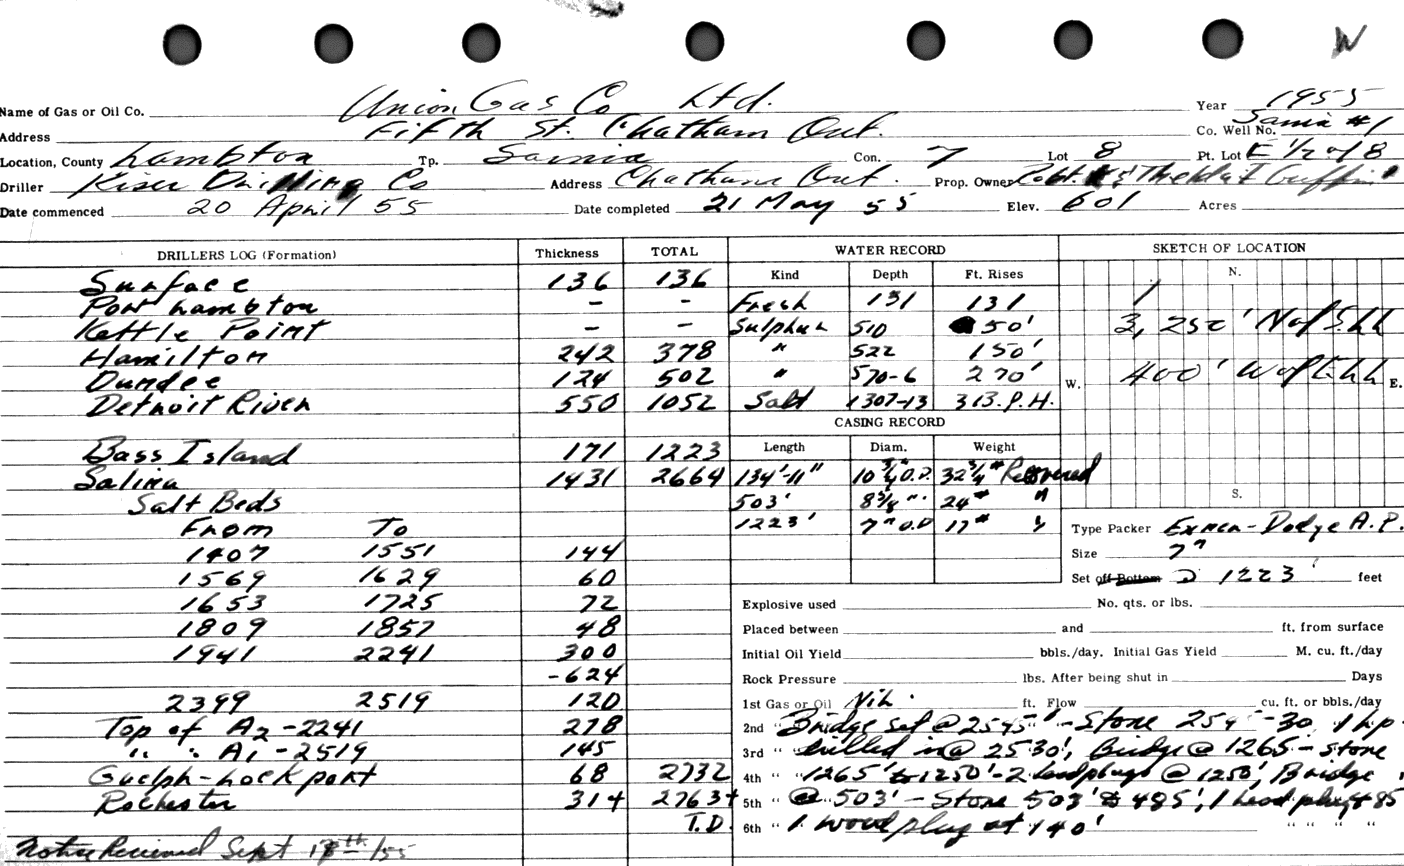 W
Name of Gas or Oil Co. Union Gas Co Ltd. Year 1955
Address Fifth St. Chatham Ont. Co. Well No. Sarnia #1
Location, County Lambton Tp. Sarnia Con. 7 Lot 8 Pt. Lot E 1/2 of 8
Driller Kiser Drilling Co Address Chatham Ont. Prop. Owner
Date commenced 20 April 55 Date completed 21 May 55 Elev. 601 Acres
DRILLERS LOG (Formation) Thickness TOTAL
Surface 136 136
Port Lambton - -
Kettle Point - -
Hamilton 242 378
Dundee 124 502
Detroit River 550 1052
Bass Island 171 1223
Salina 1431 2664
Salt Beds
From To
1407 1551 144
1569 1629 60
1653 1725 72
1809 1857 48
1941 2241 300
-624
2399 2519 120
Top of A2 - 2241 278
" " A1 - 2519 145
Guelph-Lockport 68 2732
Rochester 31+ 2763+
T.D.
Notice Received Sept 18th/55
WATER RECORD
Kind Depth Ft. Rises
Fresh 131 131
Sulphur 510 50'
" 522 150'
" 570-6 270'
Salt 1307-13 313. P.H.
CASING RECORD
Length Diam. Weight
134'-11" 10 3/4" O.D. 32 3/4# Recovered
503' 8 5/8 " 24# "
1223' 7" O.D 17# "
SKETCH OF LOCATION
N.
3,250' N of S.LL
W. 400' W of E.LL E.
S.
Type Packer Dodge A.P.
Size 7"
Set off Bottom @ 1223' feet
Explosive used No. qts. or lbs.
Placed between and ft. from surface
Initial Oil Yield bbls./day. Initial Gas Yield M. cu. ft./day
Rock Pressure lbs. After being shut in Days
1st Gas or Oil Nil. ft. Flow cu. ft. or bbls./day
2nd " Bridge set @ 2545' - Stone 2545-30, 1 hp
3rd " drilled in @ 2530', Bridge @ 1265 - Stone
4th " 1265' to 1250' - 2 lead plugs @ 1250', Bridge
5th " @ 503' - Stone 503' to 485', 1 lead plug 485
6th " 1 wood plug at 140' " " " "